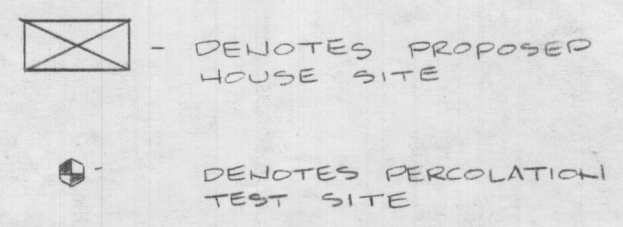 - DENOTES PROPOSED
HOUSE SITE
- DENOTES PERCOLATION
TEST SITE